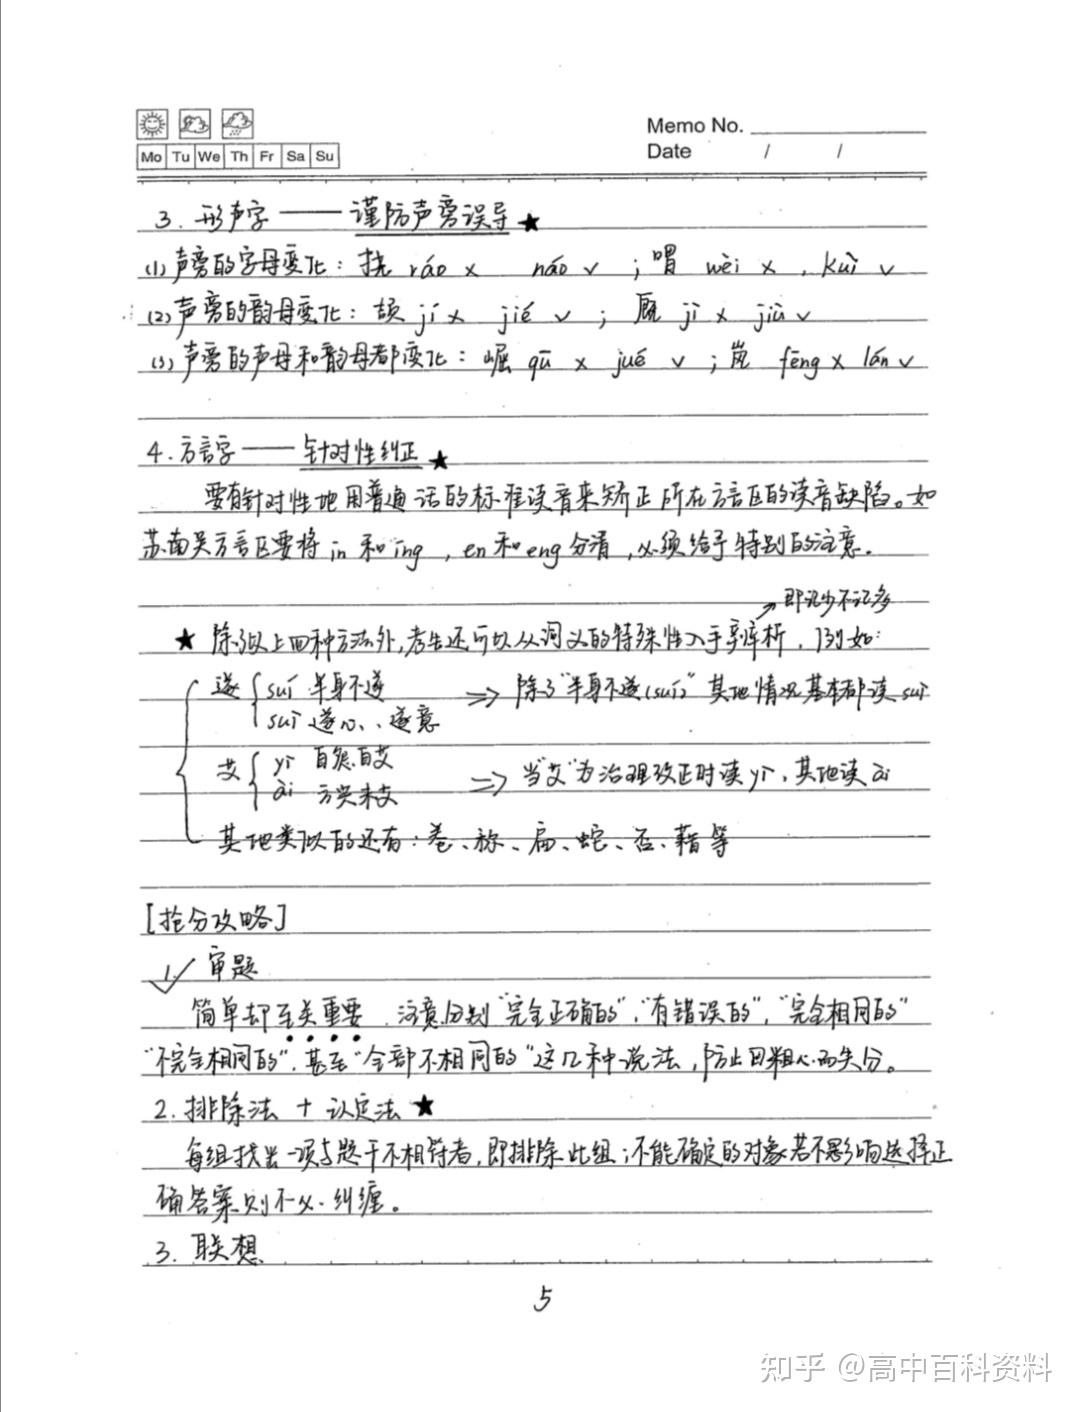 Memo No.
Mo Tu We Th Fr Sa Su
Date / /
3. 形声字 —— 谨防声旁误导 ★
(1) 声旁的字母变化：挠 ráo × náo ✓；喟 wèi ×，kuì ✓
(2) 声旁的韵母变化：颉 jí × jié ✓；厩 jì × jiù ✓
(3) 声旁的声母和韵母都变化：崛 qū × jué ✓；岚 fēng × lán ✓
4. 方言字 —— 针对性纠正 ★
要有针对性地用普通话的标准读音来矫正所在方言区的读音缺陷。如
苏南吴方言区要将 in 和 ing，en 和 eng 分清，必须给予特别的注意。
↗ 即记少不记多
★ 除了以上四种方法外，考生还可以从词义的特殊性入手辨析，例如：
遂 { suí 半身不遂 => 除了“半身不遂(suí)”其他情况基本都读 suì
suì 遂心、遂意
艾 { yì 自怨自艾
ài 方兴未艾 => 当“艾”为治理改正时读 yì，其他读 ài
其他类似的还有：卷、称、扁、蛇、否、藉等
[抢分攻略]
1. 审题
简单却至关重要，注意分别“完全正确的”，“有错误的”，“完全相同的”
“不完全相同的”，甚至“全部不相同的”这几种说法，防止因粗心而失分。
2. 排除法 + 认定法 ★
每组找出一项与题干不相符者，即排除此组；不能确定的对象若不影响选择正
确答案则不必纠缠。
3. 联想
5
知乎 @高中百科资料